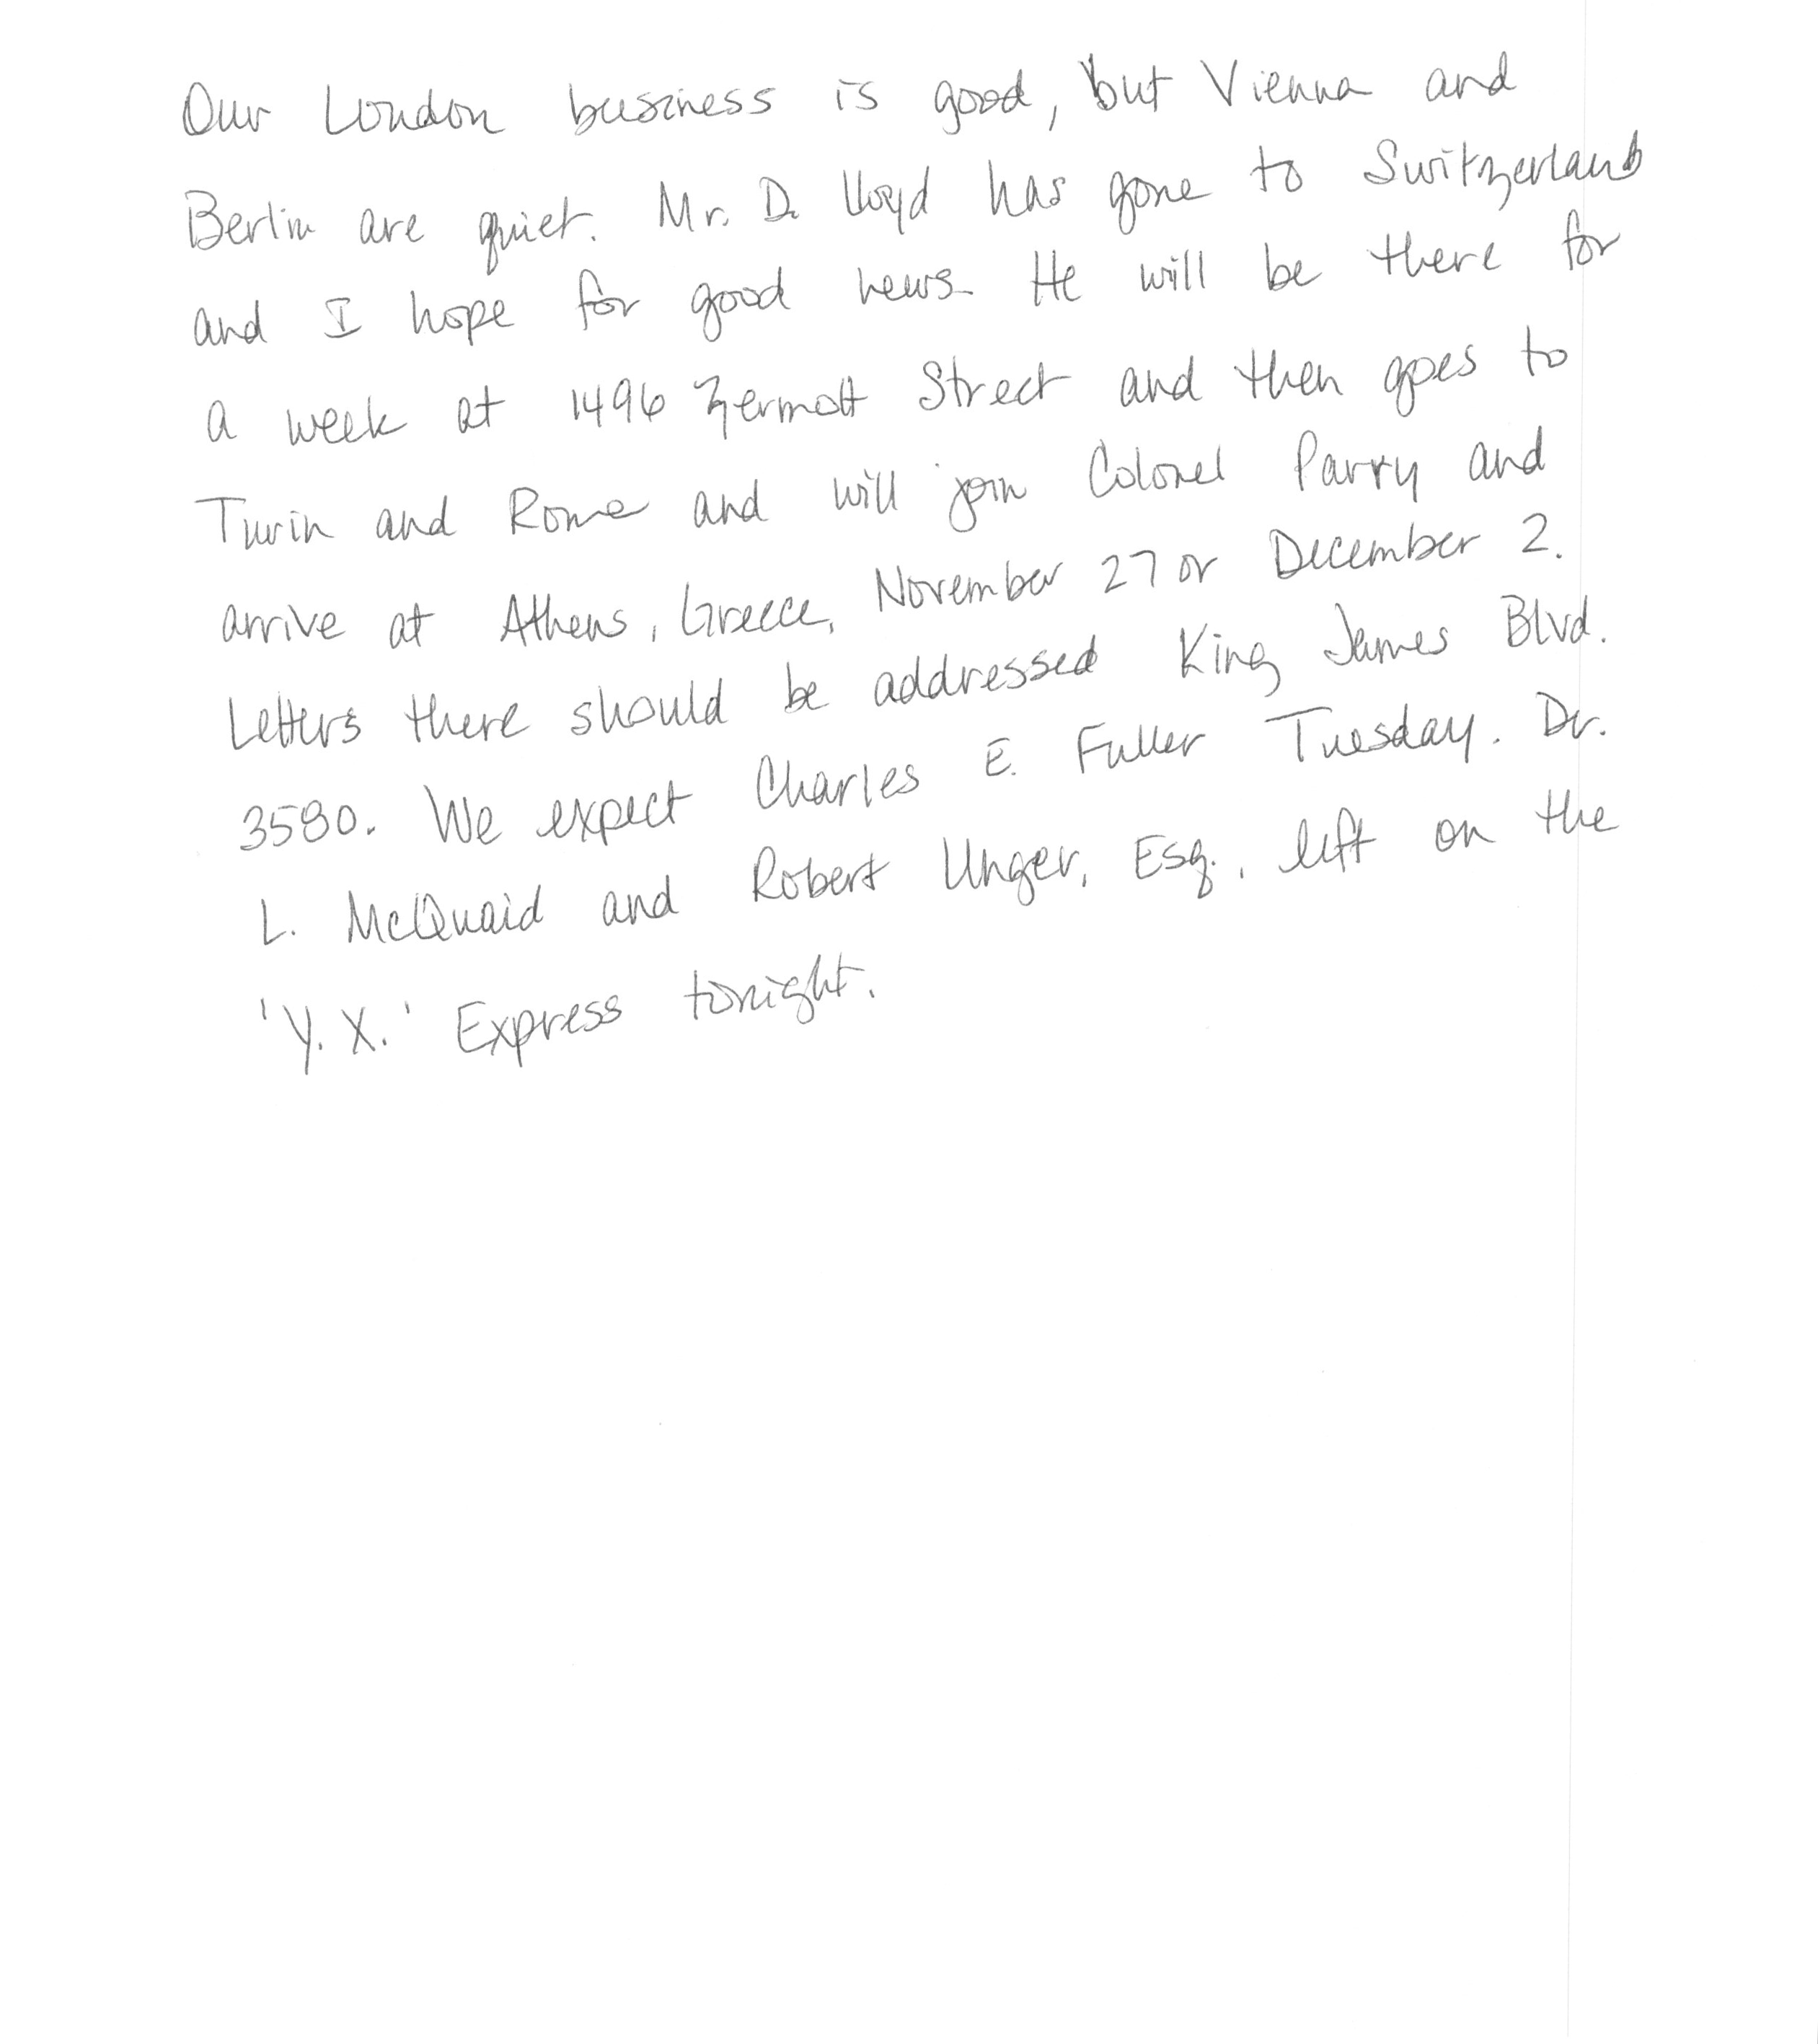 Our London business is good, but Vienna and
Berlin are quiet. Mr. D. Lloyd has gone to Switzerland
and I hope for good news. He will be there for
a week at 1496 Zermott Street and then goes to
Turin and Rome and will join Colonel Parry and
arrive at Athens, Greece, November 27 or December 2.
Letters there should be addressed King James Blvd.
3580. We expect Charles E. Fuller Tuesday. Dr.
L. McQuaid and Robert Unger, Esq., left on the
'Y.X.' Express tonight.